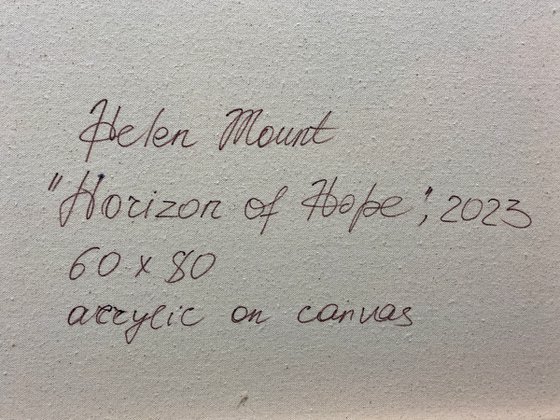 Helen Mount
"Horizon of Hope", 2023
60 x 80
acrylic on canvas